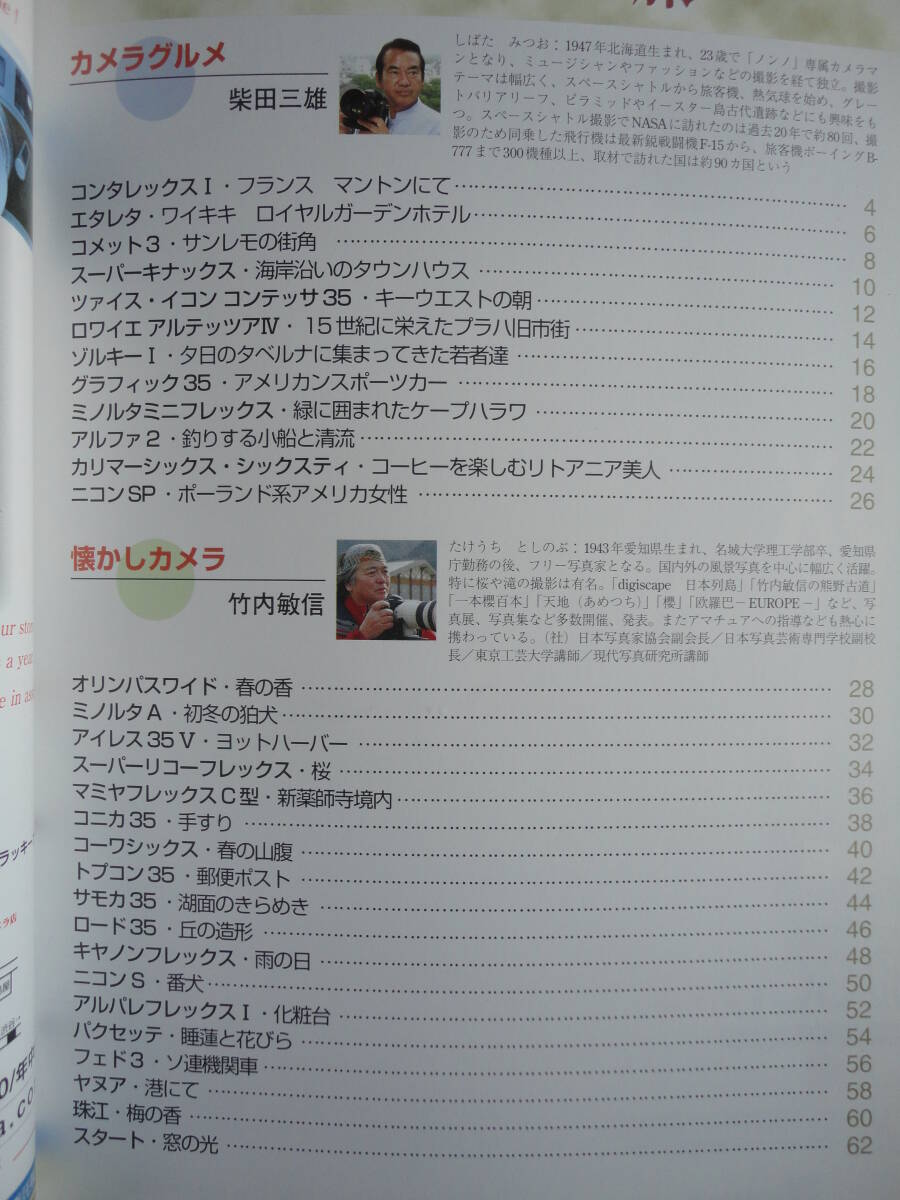 カメラグルメ
柴田三雄
しばた　みつお：1947年北海道生まれ、23歳で「ノンノ」専属カメラマ
ンとなり、ミュージシャンやファッションなどの撮影を経て独立。撮影
テーマは幅広く、スペースシャトルから旅客機、熱気球を始め、グレー
トバリアリーフ、ピラミッドやイースター島古代遺跡などにも興味をも
つ。スペースシャトル撮影でNASAに訪れたのは過去20年で約80回、撮
影のため同乗した飛行機は最新鋭戦闘機F-15から、旅客機ボーイングB-
777まで300機種以上、取材で訪れた国は約90カ国という
コンタレックスⅠ・フランス　マントンにて 4
エタレタ・ワイキキ　ロイヤルガーデンホテル 6
コメット3・サンレモの街角 8
スーパーキナックス・海岸沿いのタウンハウス 10
ツァイス・イコン コンテッサ35・キーウエストの朝 12
ロワイエ アルテッツアⅣ・15世紀に栄えたプラハ旧市街 14
ゾルキーⅠ・夕日のタベルナに集まってきた若者達 16
グラフィック35・アメリカンスポーツカー 18
ミノルタミニフレックス・緑に囲まれたケープハラワ 20
アルファ2・釣りする小船と清流 22
カリマーシックス・シックスティ・コーヒーを楽しむリトアニア美人 24
ニコンSP・ポーランド系アメリカ女性 26
懐かしカメラ
竹内敏信
たけうち　としのぶ：1943年愛知県生まれ、名城大学理工学部卒、愛知県
庁勤務の後、フリー写真家となる。国内外の風景写真を中心に幅広く活躍。
特に桜や滝の撮影は有名。「digiscape　日本列島」「竹内敏信の熊野古道」
「一本櫻百本」「天地（あめつち）」「櫻」「欧羅巴－EUROPE－」など、写
真展、写真集など多数開催、発表。またアマチュアへの指導なども熱心に
携わっている。（社）日本写真家協会副会長／日本写真芸術専門学校副校
長／東京工芸大学講師／現代写真研究所講師
オリンパスワイド・春の香 28
ミノルタA・初冬の狛犬 30
アイレス35Ⅴ・ヨットハーバー 32
スーパーリコーフレックス・桜 34
マミヤフレックスC型・新薬師寺境内 36
コニカ35・手すり 38
コーワシックス・春の山腹 40
トプコン35・郵便ポスト 42
サモカ35・湖面のきらめき 44
ロード35・丘の造形 46
キヤノンフレックス・雨の日 48
ニコンS・番犬 50
アルパレフレックスⅠ・化粧台 52
パクセッテ・睡蓮と花びら 54
フェド3・ソ連機関車 56
ヤヌア・港にて 58
珠江・梅の香 60
スタート・窓の光 62
a yea
e in as
ラッキー